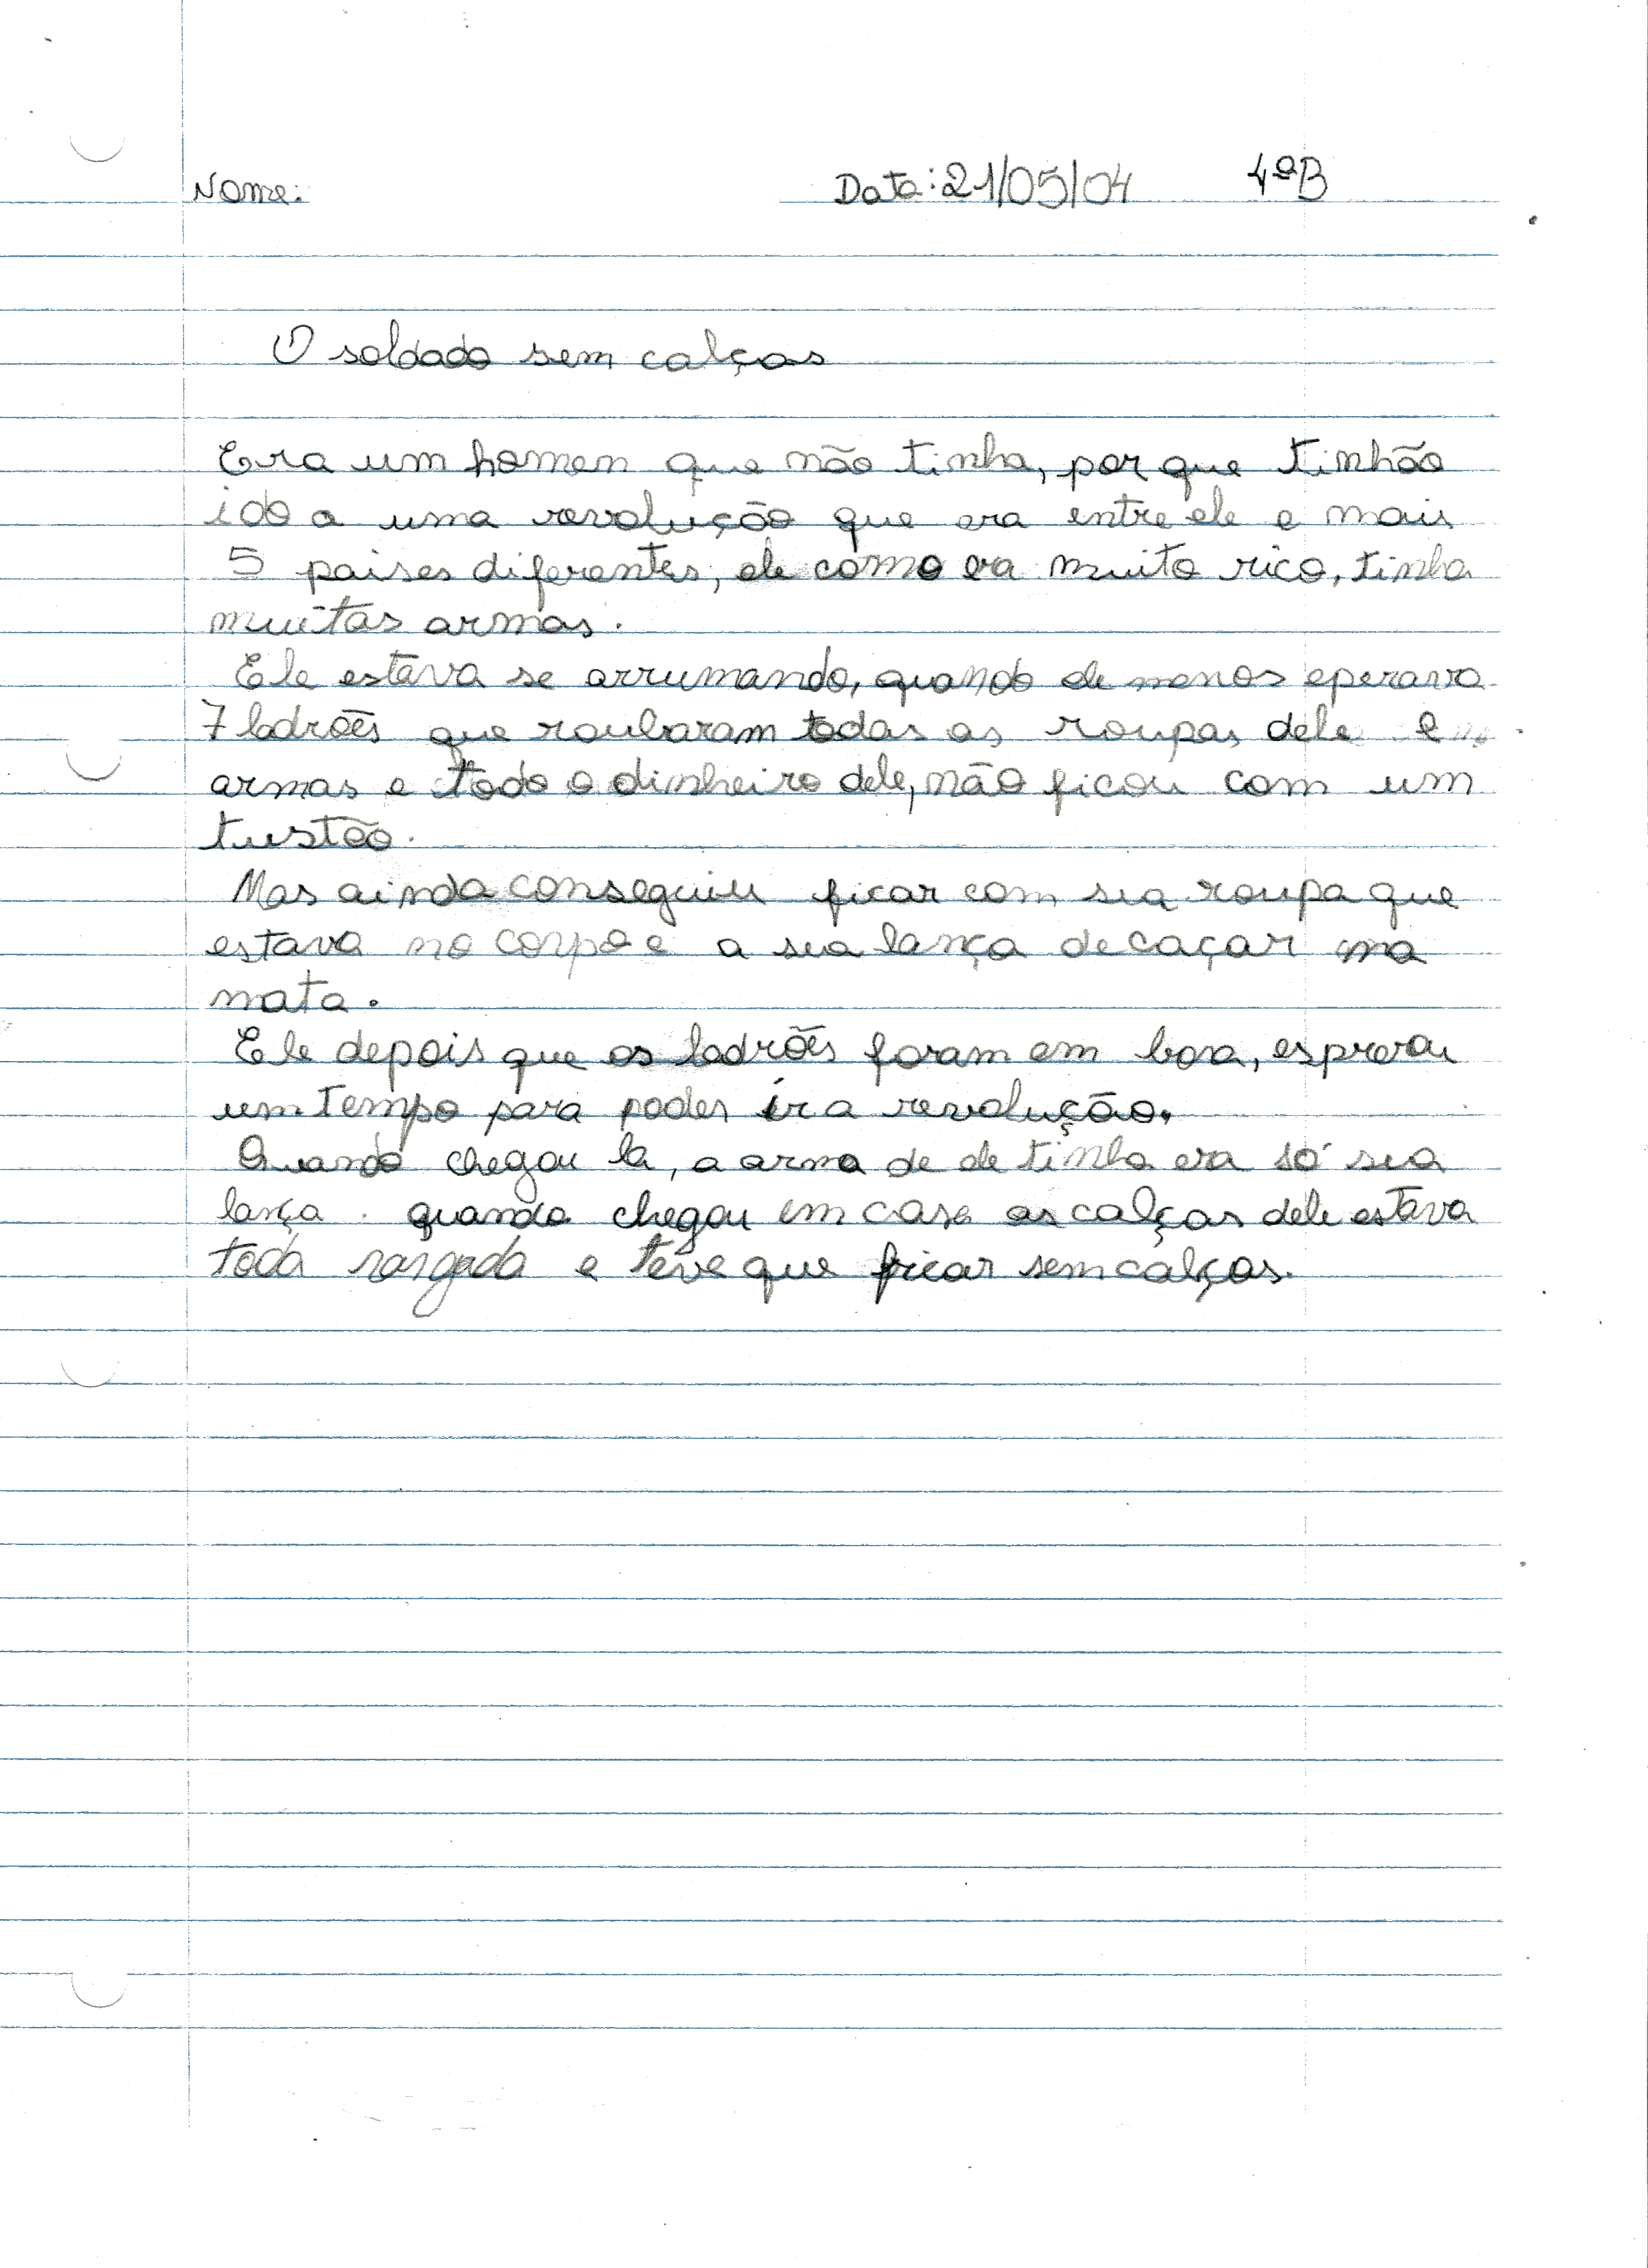 Nome: Data: 21/05/04 4ºB
O soldado sem calças
Era um homen que não tinha, por que tinhão
ido a uma revolução que era entre ele e mais
5 paises diferentes, ele como era muito rico, tinha
muitas armas.
Ele estava se arrumando, quando de menos eperava
7 ladrões que roubaram todas as roupas dele e
armas e todo o dinheiro dele, não ficou com um
tustão.
Mas ainda conseguiu ficar com sua roupa que
estava no corpo e a sua lança de caçar na
mata.
Ele depois que os ladrões foram em bora, esperou
um tempo para poder ir a revolução.
Quando chegou la, a arma de ele tinha era só sua
lança. quando chegou em casa as calças dele estava
toda rasgada e teve que ficar sem calças.